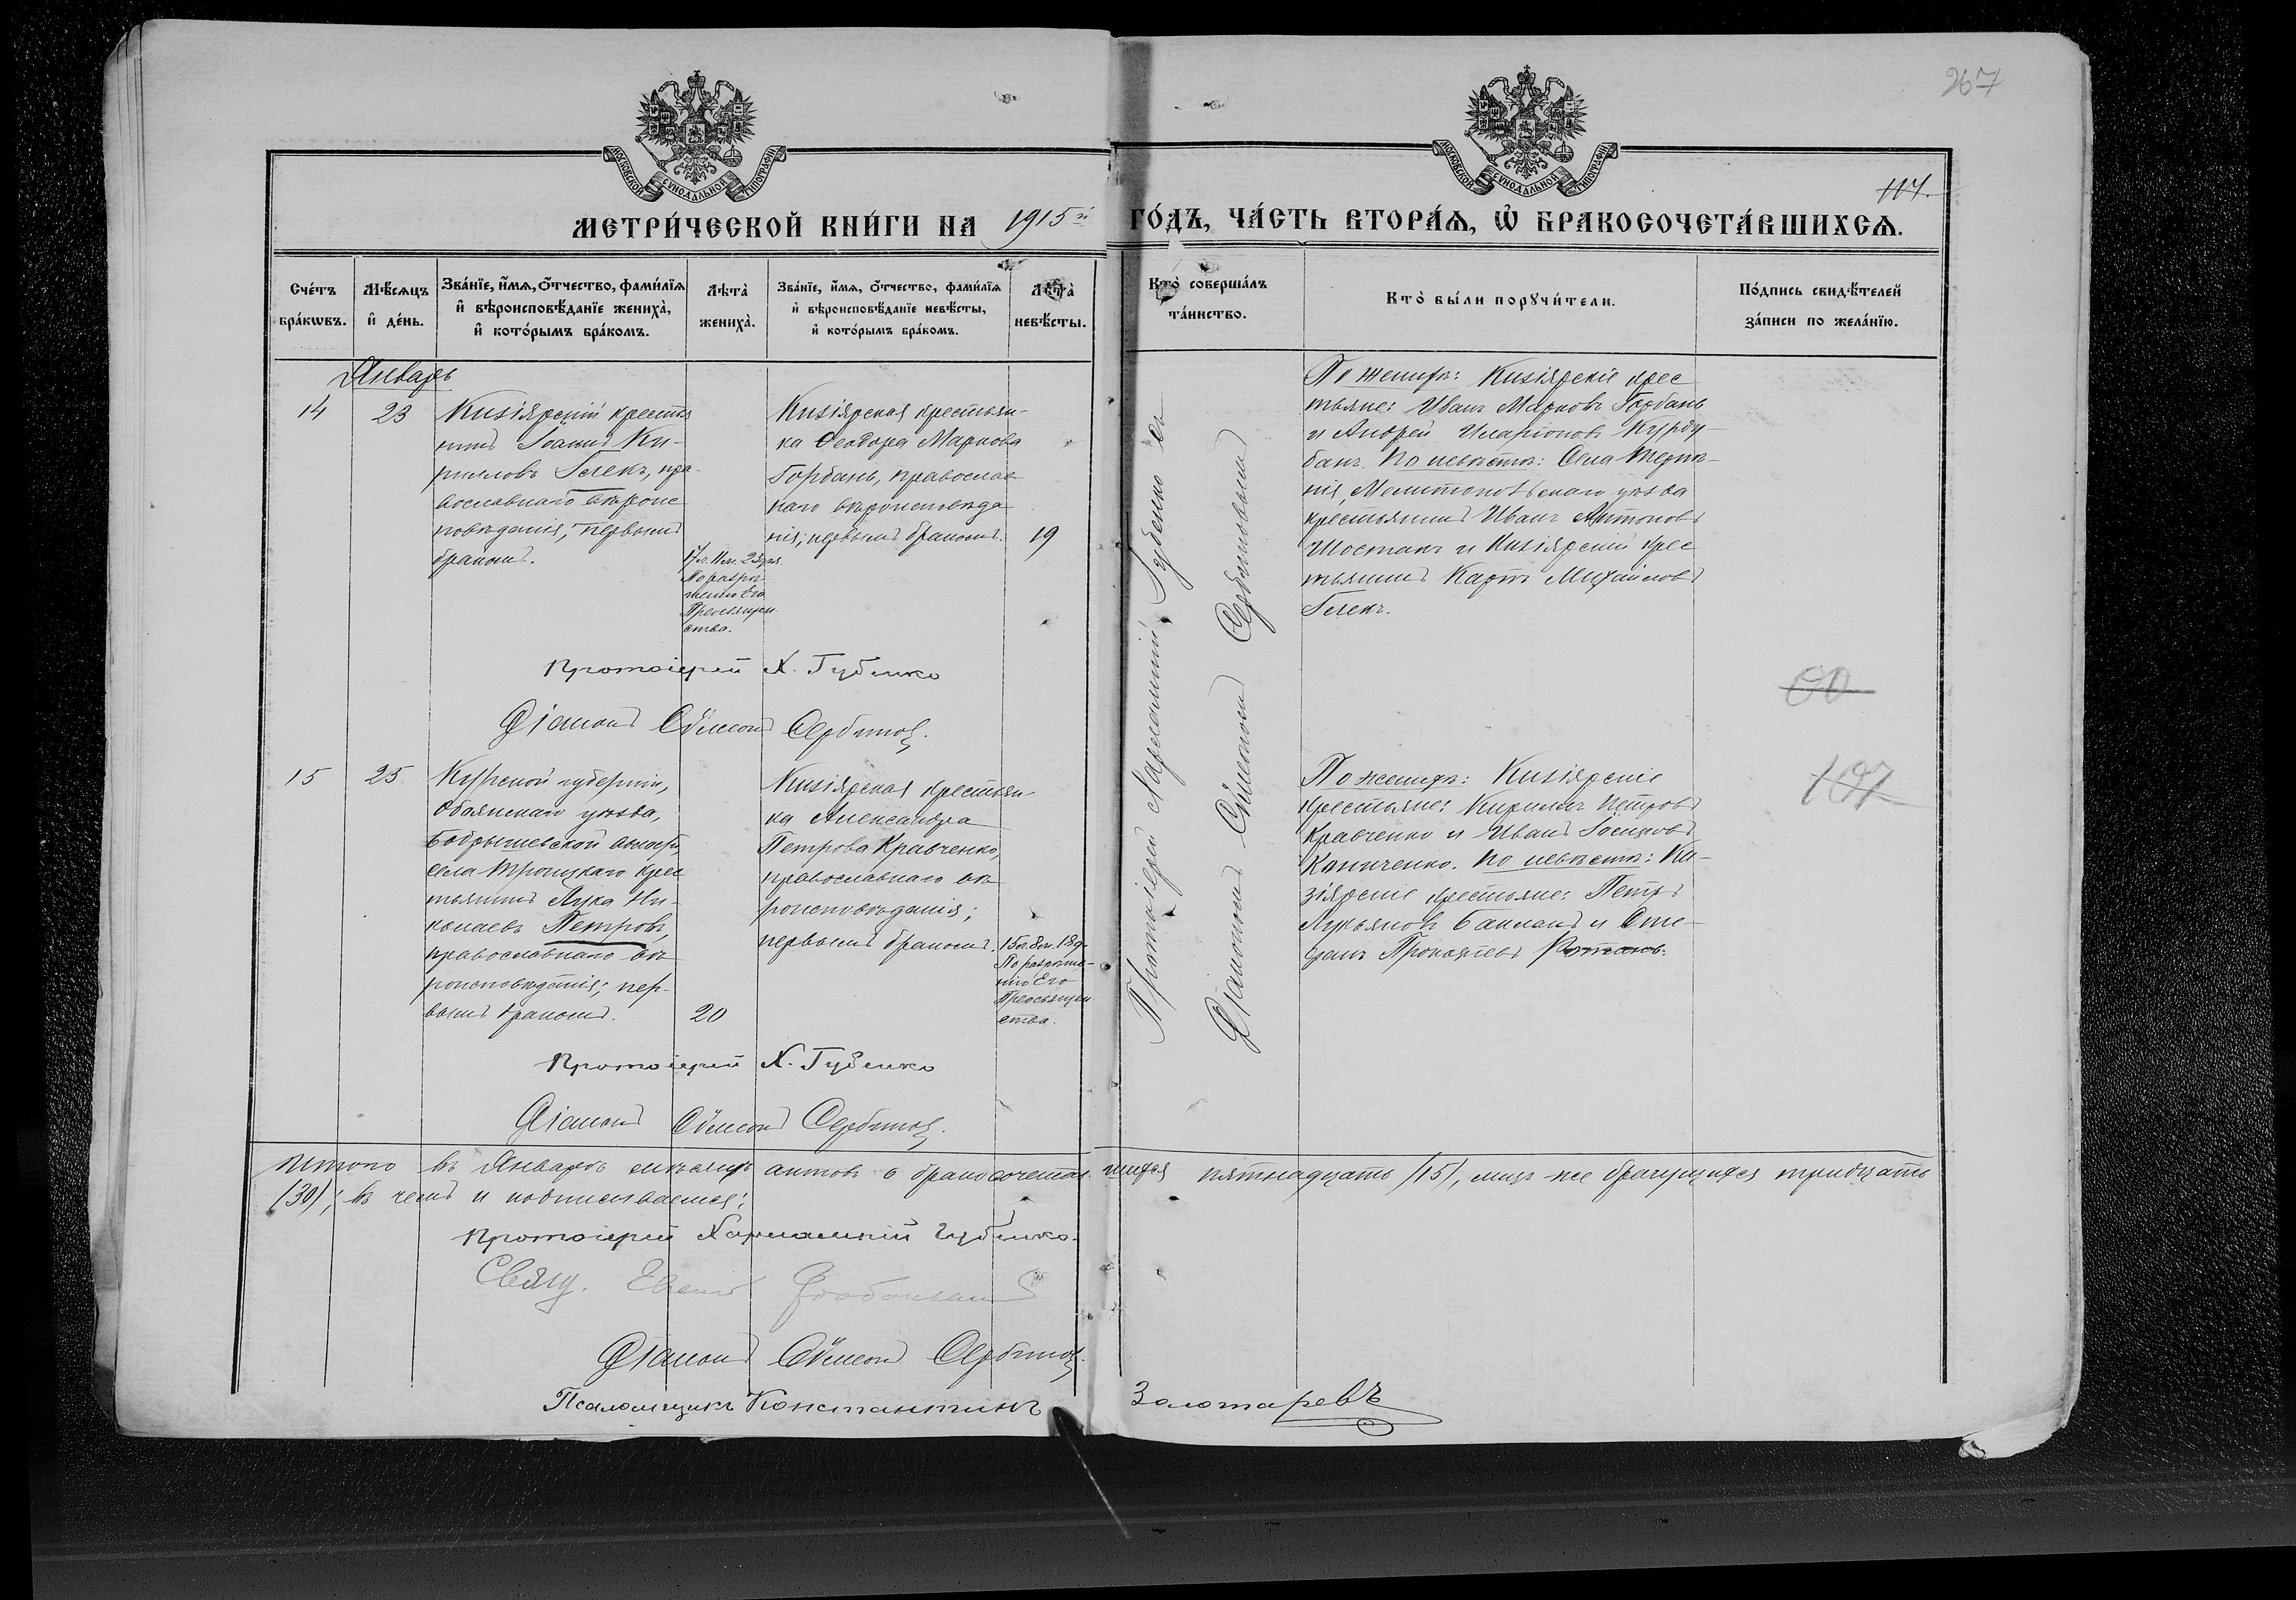 267
МОСКОВСКОЙ СѴНОДАЛЬНОЙ ТИПОГРАФІИ
МОСКОВСКОЙ СѴНОДАЛЬНОЙ ТИПОГРАФІИ
117.
МЕТРИ́ЧЕСКОЙ КНИ́ГИ НА 1915й ГО́ДЪ, ЧА́СТЬ ВТОРА́Ѧ, Ѡ҆ БРАКОСОЧЕТА́ВШИХСѦ.
Сче́тъ бра́кѡвъ.
Мѣ́сѧцъ и҆ де́нь.
Зва́нїе, и҆́мѧ, ѻ҆́тчество, фами́лїѧ
и҆ вѣроисповѣ́данїе жениха̀,
и҆ кото́рымъ бра́комъ.
Лѣта̀ жениха̀.
Зва́нїе, и҆́мѧ, ѻ҆́тчество, фами́лїѧ
и҆ вѣроисповѣ́данїе невѣ́сты,
и҆ кото́рымъ бра́комъ.
Лѣта̀ невѣ́сты.
Кто̀ соверша́лъ та́инство.
Кто̀ бы́ли порꙋчи́тели.
По́дпись свидѣ́телей
за́писи по жела́нїю.
Январь
14
23
Кизіярскій крестья
нинъ Іоаннъ Ки-
рилловъ Гелекъ, пра-
вославнаго вѣроис
повѣданія; первымъ
бракомъ.
17 л. 11 м. 23 дня.
По разрѣ-
шенію Его
Преосвящен
ства.
Кизіярская крестьян-
ка Ѳеодора Маркова
Горбань, православ
наго вѣроисповѣда
нія; первымъ бракомъ.
19
Протоіерей Харлампій Губенко съ
Діакономъ Сѵмеономъ Сербиновымъ
По женихѣ: Кизіярскіе крес
тьяне: Иванъ Марковъ Горбань
и Андрей Иларіоновъ Курду-
банъ. По невѣстѣ: Села Терпѣ-
нія, Мелитопольскаго уѣзда
крестьянинъ Иванъ Антоновъ
Шостакъ и Кизіярскій крес
тьянинъ Карпъ Михайловъ
Гелекъ.
Протоіерей Х. Губенко
Діаконъ Сѵмеонъ Сербиновъ.
15
25
Курской губерніи,
Обоянскаго уѣзда,
Бобрышевской волости,
села Троицкаго крес
тьянинъ Лука Ни-
колаевъ Петровъ,
православнаго вѣ
роисповѣданія; пер-
вымъ бракомъ.
20
Кизіярская крестьян-
ка Александра
Петрова Кравченко,
православнаго вѣ
роисповѣданія;
первымъ бракомъ.
15 л. 8 м. 18 д.
По разрѣше-
нію Его
Преосвящен
ства.
По женихѣ: Кизіярскіе
крестьяне: Кириллъ Петровъ
Кравченко и Иванъ
По невѣстѣ: Ки-
зіярскіе крестьяне: Петръ
Лукьяновъ Бакланъ и Сте-
фанъ Прокопіевъ
Протоіерей Х. Губенко
Діаконъ Сѵмеонъ Сербиновъ.
Итого въ Январѣ мѣсяцѣ актовъ о бракосочетав шихся пятнадцать (15), лицъ же брачущихся тридцать
(30); въ чемъ и подписываемся:
Протоіерей Харлампій Губенко.
Свящ.
Діаконъ Сѵмеонъ Сербиновъ.
Псаломщикъ Константинъ Золотаревъ